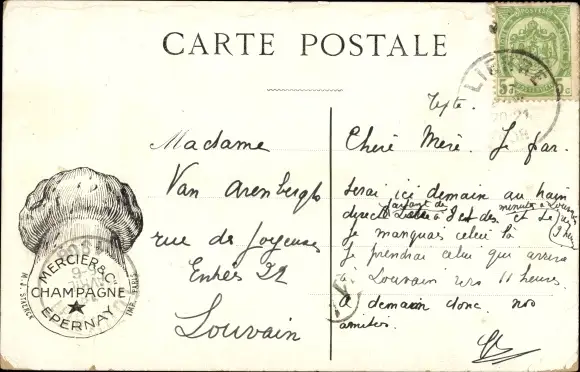 CARTE POSTALE
5c 5c
LIERRE
20-21
Madame
Van Arenbergh
rue de Joyeuse
Entrée 32
Louvain
MERCIER & Cie
CHAMPAGNE
ÉPERNAY
Chère Mère. Je par-
serai ici demain au train
partant de minute à Louvain
direct et si je
9 heu
je manquais celui là
je prendrai celui qui arrive
à Louvain vers 11 heures
A demain donc. nos
amitiés